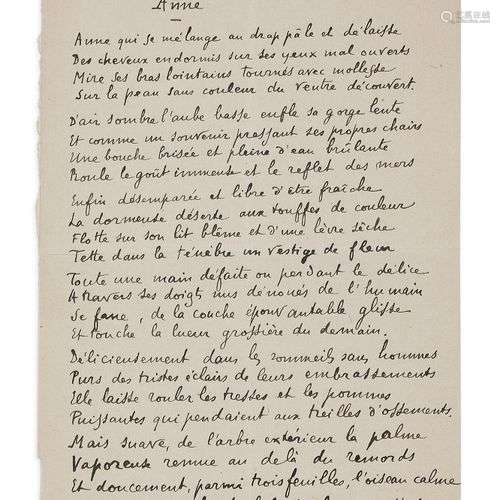 Anne
Anne qui se mélange au drap pâle et délaisse
Des cheveux endormis sur ses yeux mal ouverts
Mire ses bras lointains tournés avec mollesse
Sur la peau sans couleur du ventre découvert.
D'air sombre l'aube basse enfle sa gorge lente
Et comme un souvenir pressant ses propres chairs
Une bouche brisée et pleine d'eau brûlante
Roule le goût immense et le reflet des mers
Enfin désemparée et libre d'être fraîche
La dormeuse déserte aux touffes de couleur
Flotte sur son lit blême et d'une lèvre sèche
Tette dans la ténèbre un vestige de fleur
Toute une main défaite ou perdant le délice
A travers ses doigts nus dénoués de l'humain
Se fane, de la couche épouvantable glisse
Et touche la lueur grossière du demain.
Délicieusement dans les sommeils sans hommes
Purs des tristes éclairs de leurs embrassements
Elle laisse rouler les tresses et les pommes
Puissantes qui pendaient aux treilles d'ossements.
Mais suave, de l'arbre extérieur la palme
Vaporeux remue au delà du remords
Et doucement, parmi trois feuilles, l'oiseau calme